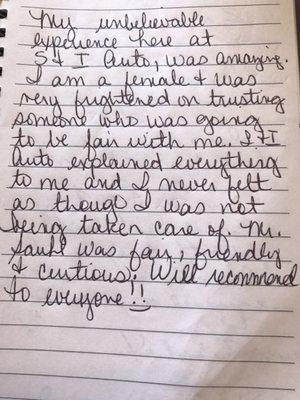 My unbelievable
experience here at
S & I Auto, was amazing.
I am a female & was
very frightened on trusting
someone who was going
to be fair with me. S & I
Auto explained everything
to me and I never felt
as though I was not
being taken care of. Mr.
was fair, friendly
& curtious! Will recommend
to everyone!!